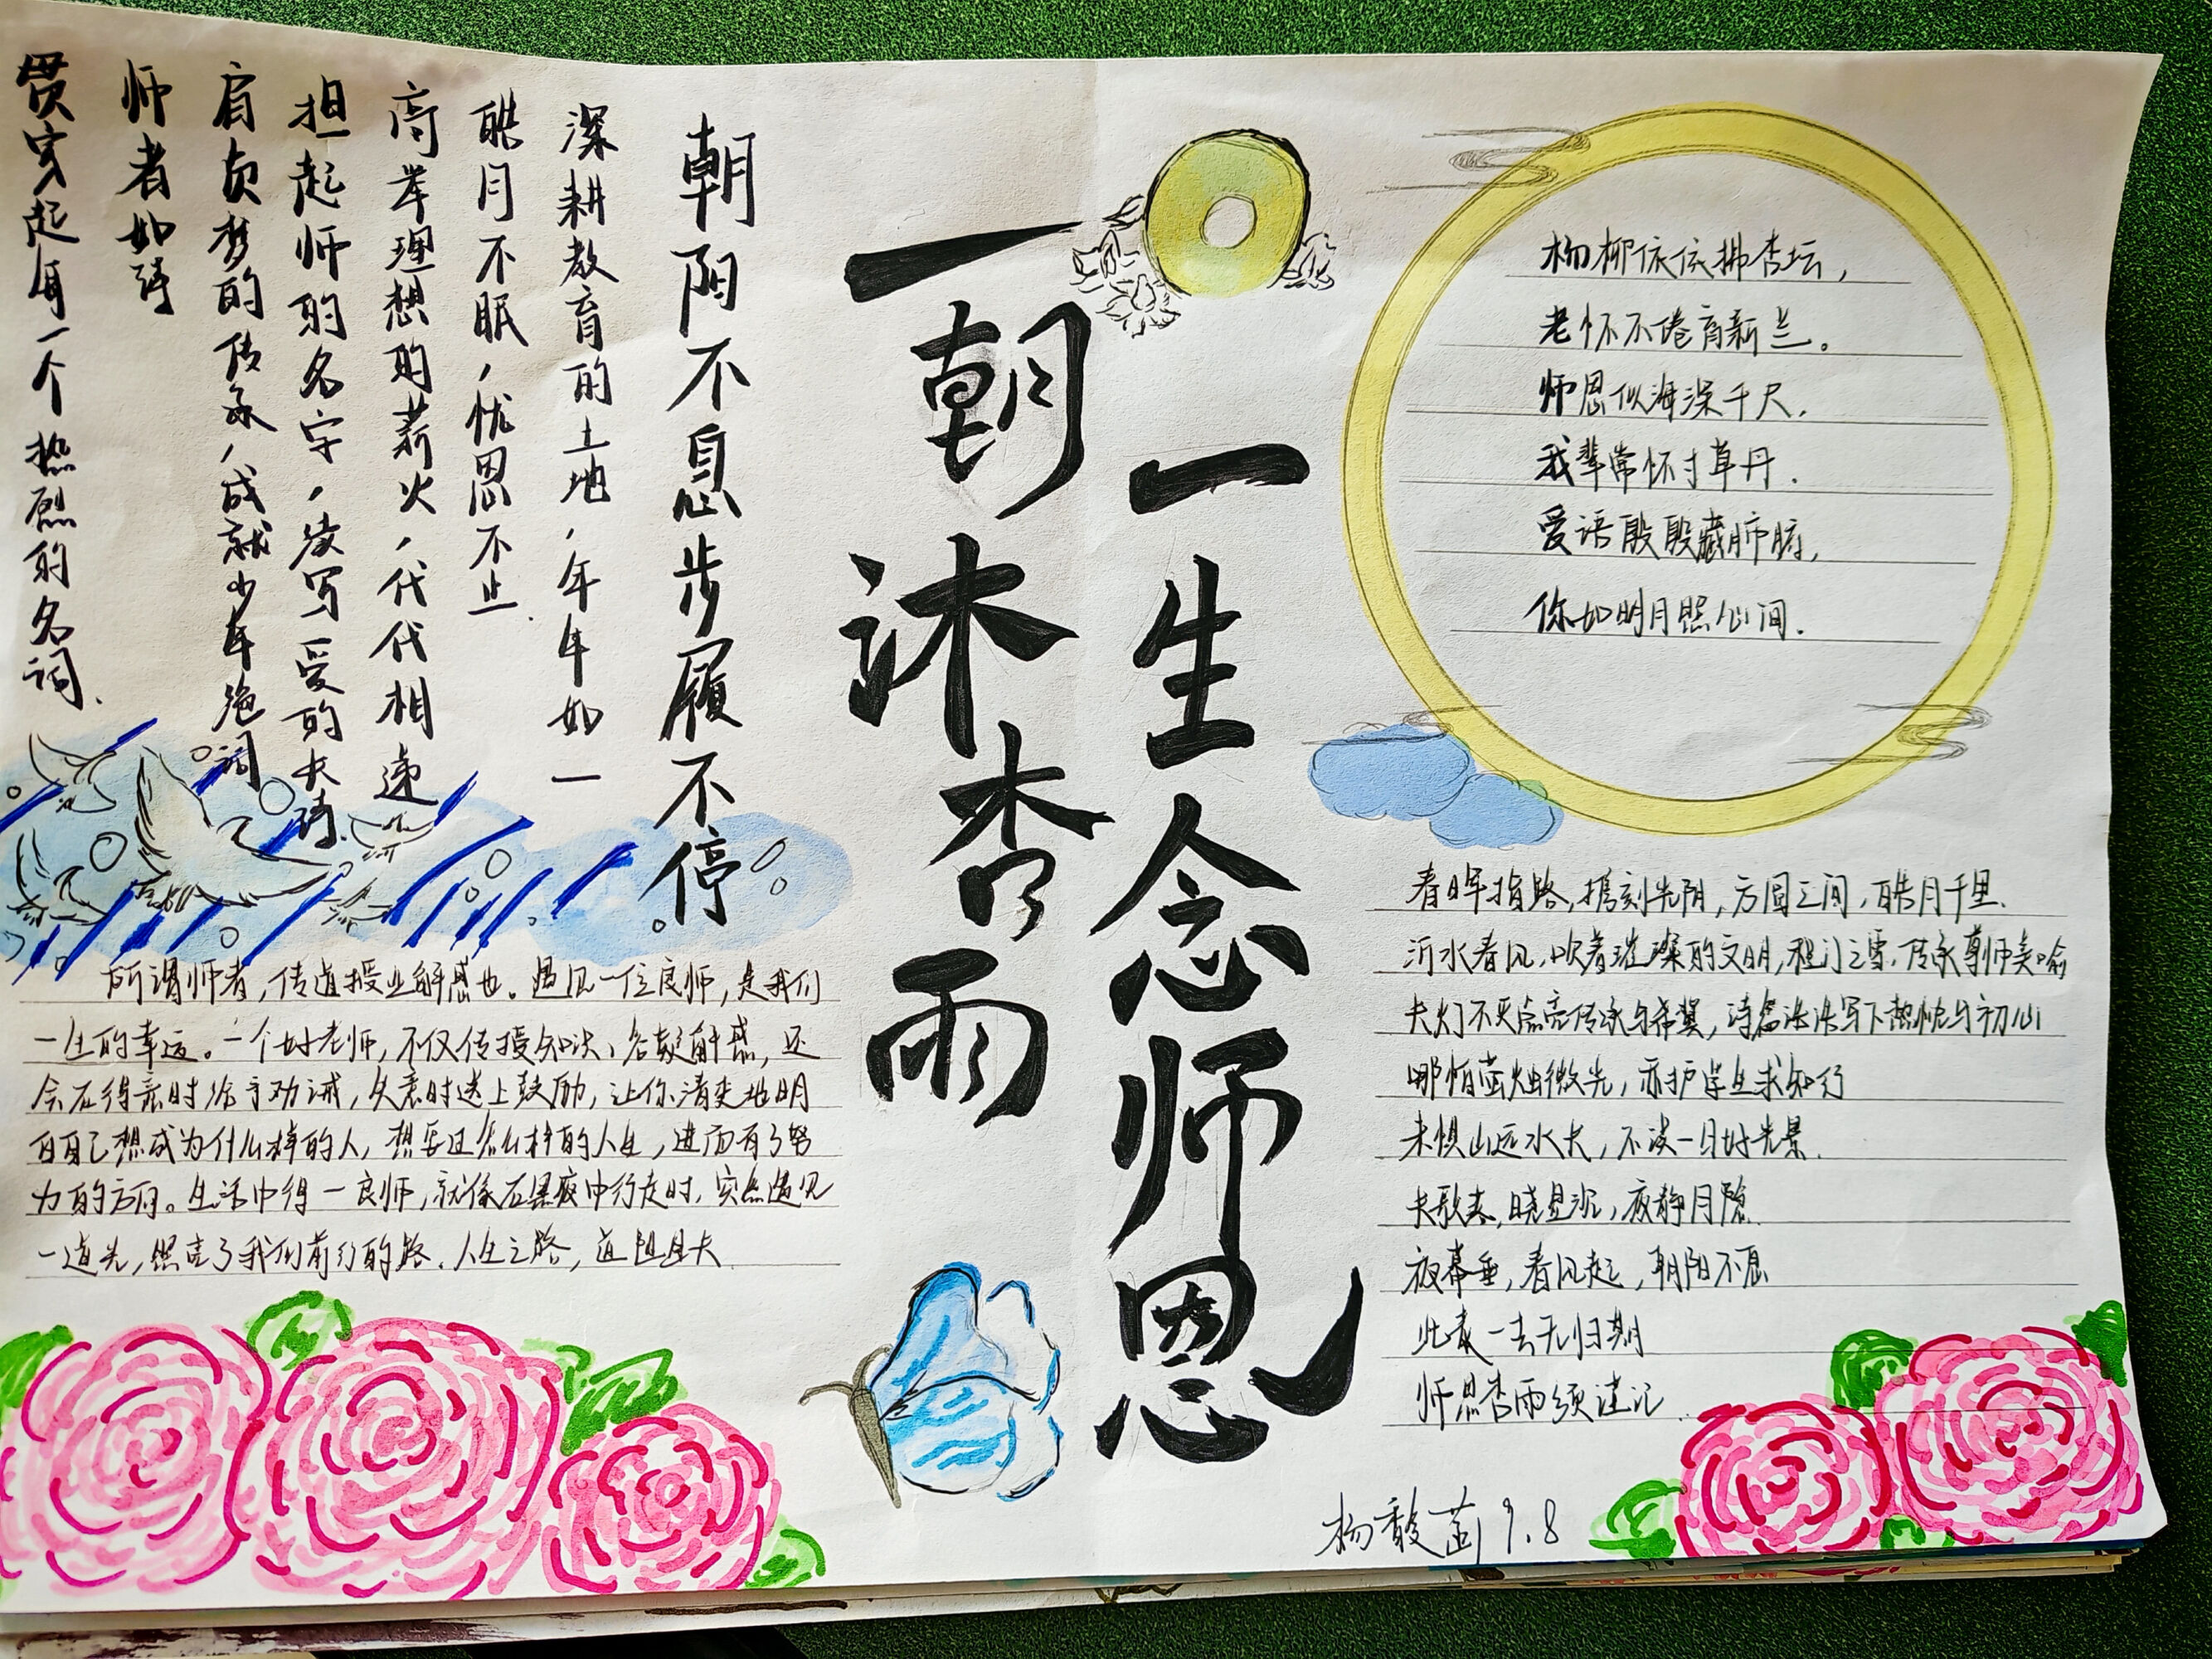 一朝沐杏雨
一生念师恩
朝阳不息步履不停
深耕教育的土地，年年如一
皓月不眠，忧思不止.
高举理想的薪火，代代相递
担起师的名字，谈写爱的长诗.
肩负梦的传承，成就少年绝词
师者如诗
贯穿起每一个热烈的名词.
杨柳依依拂杏坛，
老怀不倦育新兰。
师恩似海深千尺，
我辈常怀寸草丹.
爱语殷殷藏肺腑，
你如明月照心间.
所谓师者，传道授业解惑也。遇见一位良师，是我们
一生的幸运。一个好老师，不仅传授知识，答疑解惑，还
会在得意时给予劝诫，失意时送上鼓励，让你清楚地明
白自己想成为什么样的人，想要过怎么样的人生，进而有了努
力的方向。生活中得一良师，就像在黑夜中行走时，突然遇见
一道光，照亮了我们前行的路.人生之路，道阻且长
春晖指路，携刻光阴，方圆之间，皓月千里.
沂水春风，吹着璀璨的文明，程门之雪，传承尊师美喻
长灯不灭点亮传承与希冀，诗篇浩浩写下热忱与初心
哪怕萤烛微光，亦护学生求知行
未惧山远水长，不误一日好光景.
长歌来，晓星沉，夜静月隐.
夜幕垂，春风起，朝阳不息
此去一去无归期
师恩杏雨须谨记.
杨馥菡 9.8